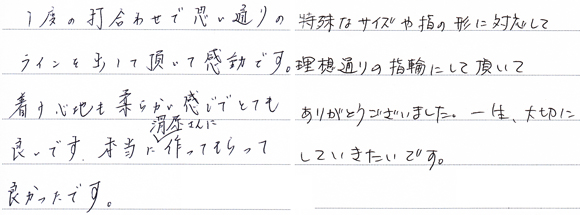 1度の打合わせで思い通りの
ラインを出して頂いて感動です。
着け心地も柔らかい感じでとても
良いです。本当に渭原さんに作ってもらって
良かったです。
特殊なサイズや指の形に対応して
理想通りの指輪にして頂いて
ありがとうございました。一生、大切に
していきたいです。